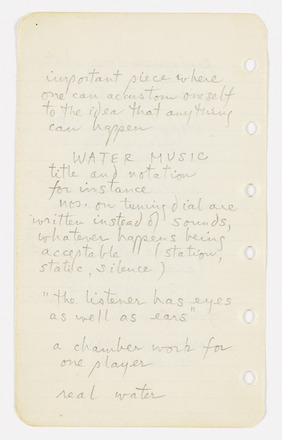 important piece where
one can accustom oneself
to the idea that anything
can happen
WATER MUSIC
title and notation
for instance
nos. on tuning dial are
written instead of sounds,
whatever happens being
acceptable (station,
static, silence)
"the listener has eyes
as well as ears"
a chamber work for
one player
real water